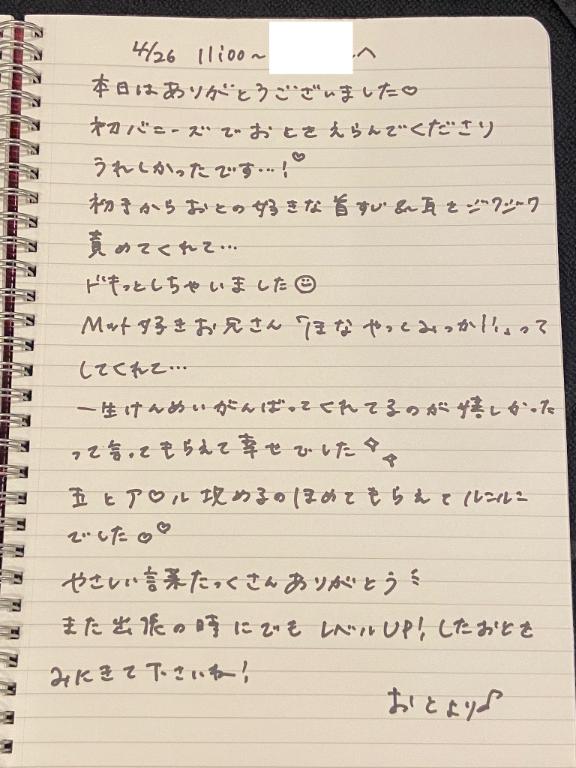 4/26 11:00~ へ
本日はありがとうございました♡
初バニーズでおとをえらんでくださり
うれしかったです…!♡
初手からおとの好きな首すじ&耳をジワジワ
責めてくれて…
ドキっとしちゃいました☺
Mット好きお兄さん「ほなやってみっか!!」って
してくれて…
一生けんめいがんばってくれてるのが嬉しかった
って言ってもらえて幸せでした✧✧
玉とア♡ル攻めるのほめてもらえてルンルン
でした♡♡
やさしい言葉たっくさんありがとう
また出張の時にでもレベルUP!したおとを
みにきて下さいね!
おとより♪